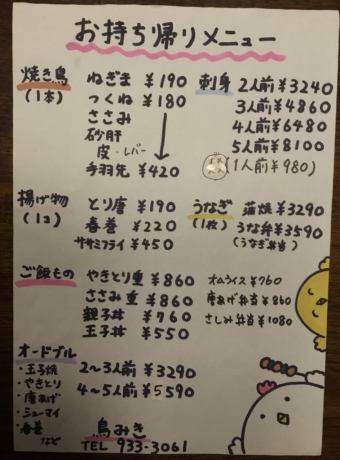 お持ち帰りメニュー
焼き鳥
(1本)
ねぎま ¥190
つくね ¥180
ささみ
砂肝
皮・レバー
手羽先 ¥420
刺身 2人前¥3240
3人前¥4860
4人前¥6480
5人前¥8100
(1人前¥980)
揚げ物
(1コ)
とり唐 ¥190
春巻 ¥220
ササミフライ ¥450
うなぎ
(1枚)
蒲焼 ¥3290
うな弁¥3590
(うなぎ弁当)
ご飯もの
やきとり重 ¥860
ささみ重 ¥860
親子丼 ¥760
玉子丼 ¥550
オムライス ¥760
唐あげ弁当 ¥860
さしみ弁当 ¥1080
オードブル
・玉子焼
・やきとり
・唐あげ
・シューマイ
・春巻
など
2〜3人前 ¥3290
4〜5人前 ¥5590
鳥みき
TEL 933-3061